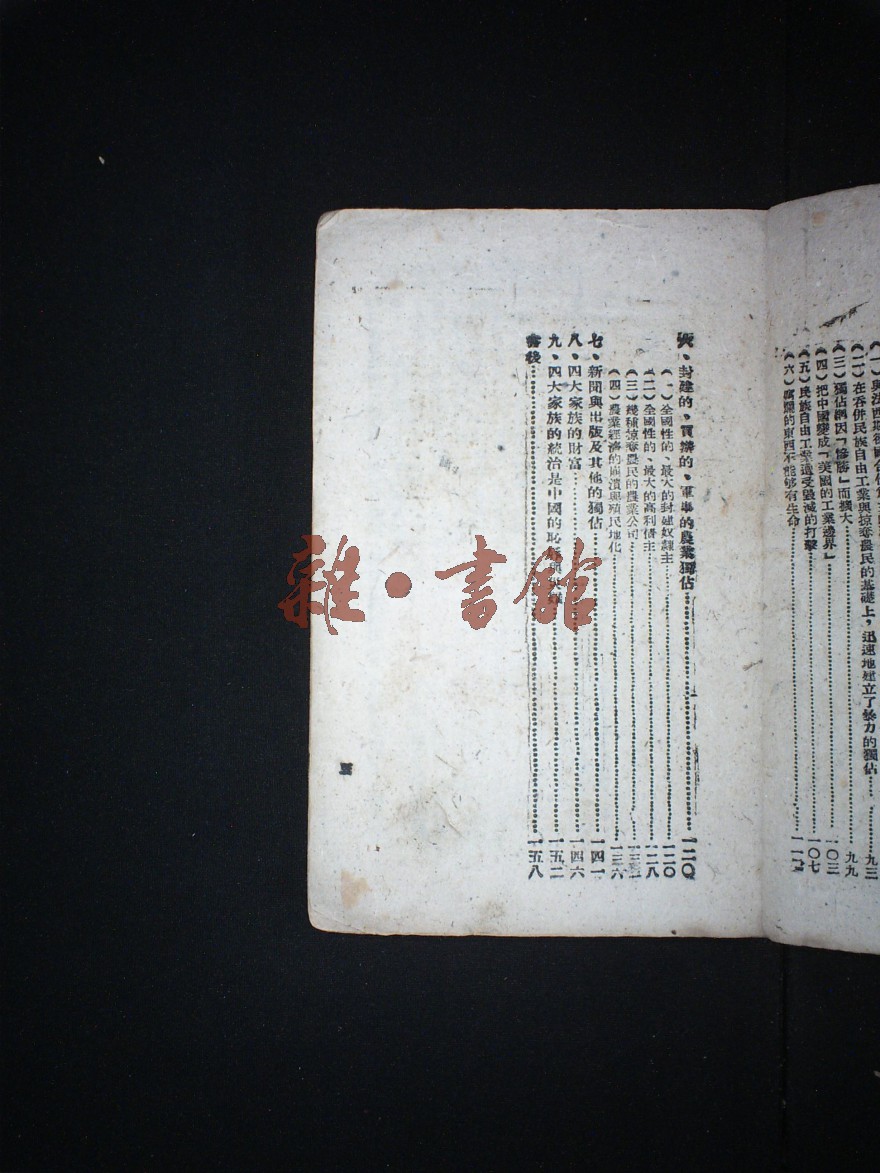 在吞併民族自由工業與掠奪農民的基礎上，迅速地建立了暴力的獨佔……九三
（三）獨佔網因「慘勝」而擴大……九九
（四）把中國變成「美國的工業邊界」……一〇三
（五）民族自由工業遭受毀滅的打擊……一〇七
（六）腐爛的東西不能够有生命……一一
六、封建的、買辦的、軍事的農業獨佔……一二〇
（一）全國性的、最大的封建奴隸主……一二〇
（二）全國性的、最大的高利債主……一二八
（三）幾種掠奪農民的農業公司……一三
（四）農業經濟的崩潰與殖民地化……一三六
七、新聞與出版及其他的獨佔……一四一
八、四大家族的財富……一四六
九、四大家族的統治是中國的恥……一五二
書後……一五八
五
雜·書館